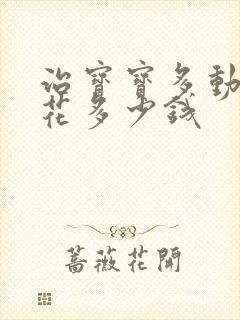 治寳寳多動
花多少錢
薔薇花開